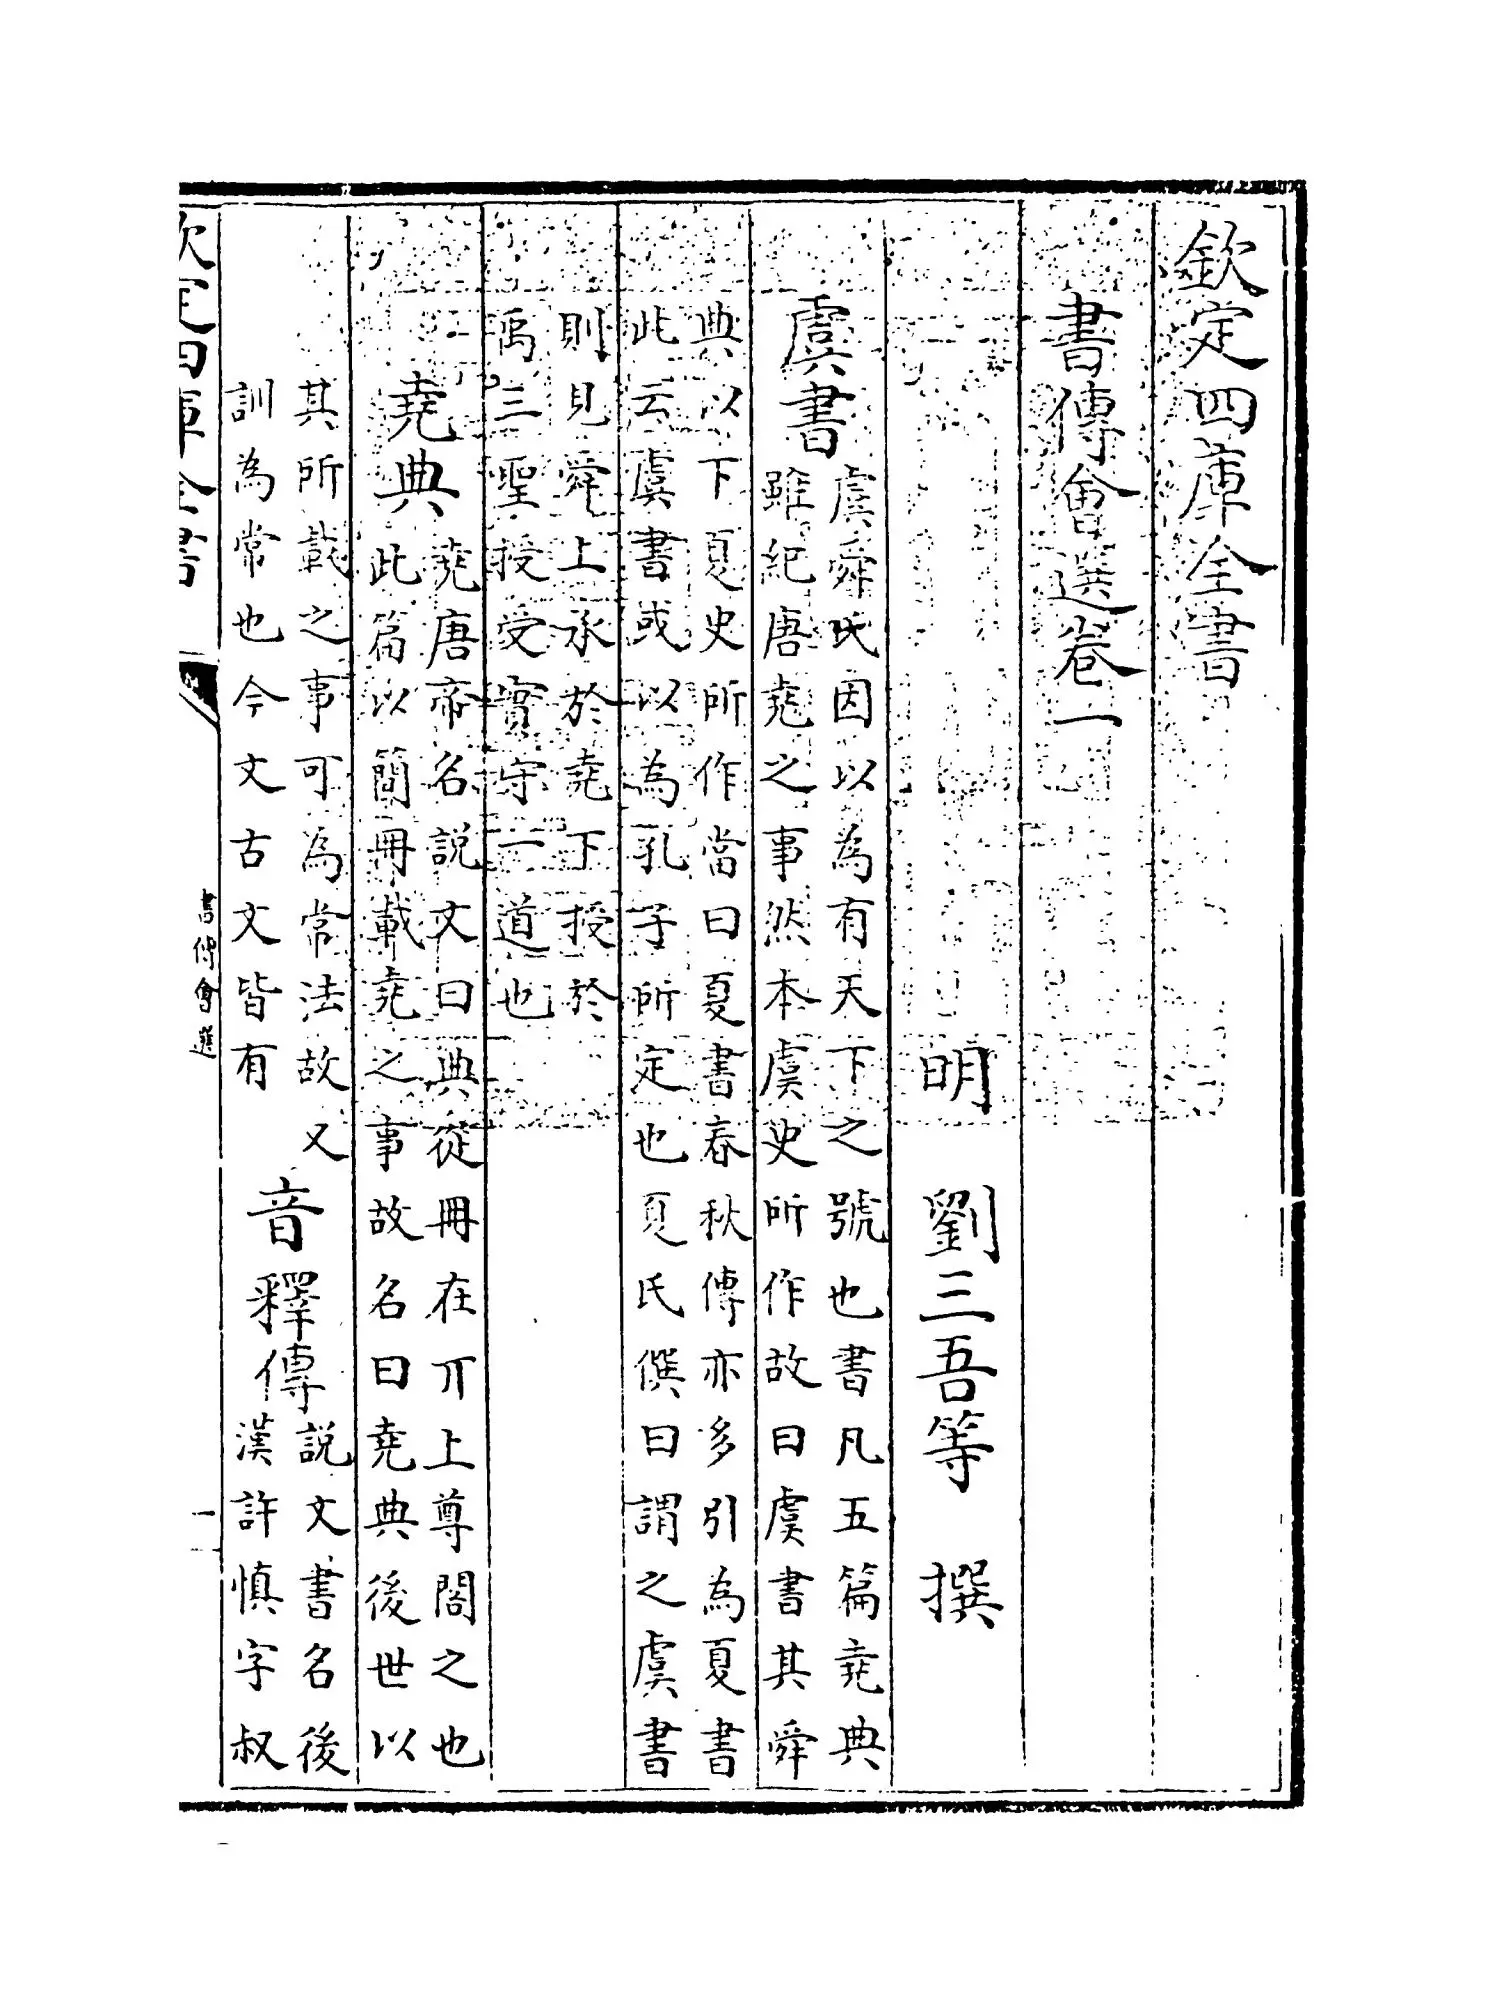 欽定四庫全書
書傳會選卷一
明 劉三吾等 撰
虞書
虞舜氏因以為有天下之號也書凡五篇堯典
雖紀唐堯之事然本虞史所作故曰虞書其舜
典以下夏史所作當曰夏書春秋傳亦多引為夏書
此云虞書或以為孔子所定也夏氏僎曰謂之虞書
則見舜上承於堯下授於
禹三聖授受實守一道也
堯典
堯唐帝名說文曰典從冊在丌上尊閣之也
此篇以簡冊載堯之事故名曰堯典後世以
其所載之事可為常法故又
訓為常也今文古文皆有
音釋傳
說文書名後
漢許慎字叔
欽定四庫全書
書傳會選
一